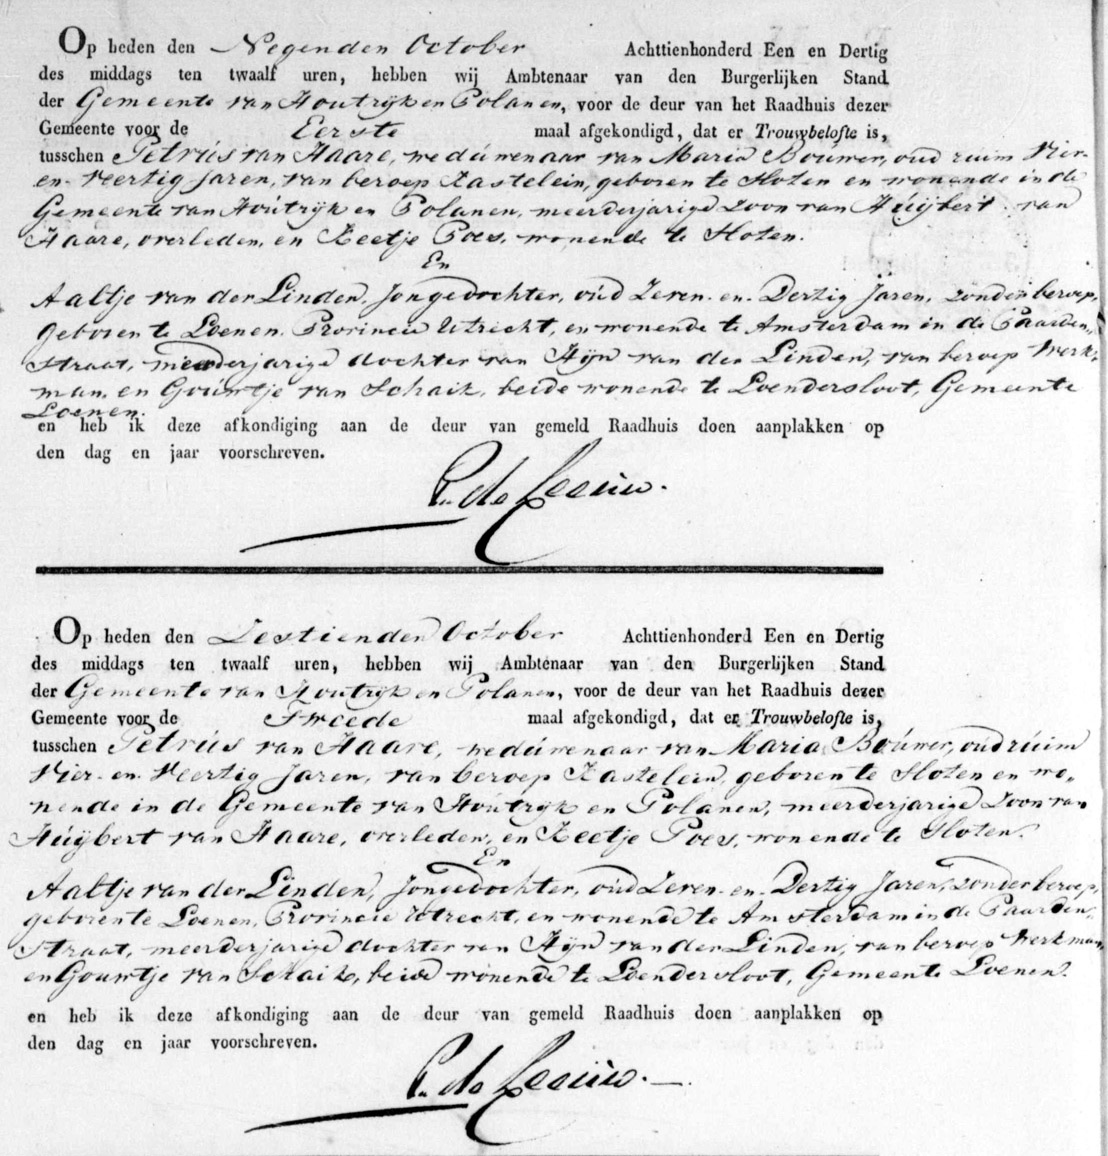 Op heden den Negenden October Achttienhonderd Een en Dertig
des middags ten twaalf uren, hebben wij Ambtenaar van den Burgerlijken Stand
der Gemeente van Houtrijk en Polanen, voor de deur van het Raadhuis dezer
Gemeente voor de Eerste maal afgekondigd, dat er Trouwbelofte is,
tusschen Petrus van Haare, weduwenaar van Maria Bouwer, oud ruim Vier-
en-Veertig Jaren, van beroep Kastelein, geboren te Sloten en wonende in de
Gemeente van Houtrijk en Polanen, meerderjarige Zoon van Huijbert van
Haare, overleden, en Keetje Poes, wonende te Sloten.
En
Aaltje van der Linden, Jongedochter, oud Zeven-en-Dertig Jaren, zonder beroep,
geboren te Loenen, Provincie Utrecht, en wonende te Amsterdam in de Paarden„
straat, meerderjarige dochter van Hijn van der Linden, van beroep Werk-
man, en Gouwtje van Schaik, beide wonende te Loendersloot, Gemeente
Loenen.
en heb ik deze afkondiging aan de deur van gemeld Raadhuis doen aanplakken op
den dag en jaar voorschreven.
P. de Leeuw.
Op heden den Zestienden October Achttienhonderd Een en Dertig
des middags ten twaalf uren, hebben wij Ambtenaar van den Burgerlijken Stand
der Gemeente van Houtrijk en Polanen, voor de deur van het Raadhuis dezer
Gemeente voor de Tweede maal afgekondigd, dat er Trouwbelofte is,
tusschen Petrus van Haare, weduwenaar van Maria Bouwer, oud ruim
Vier-en-Veertig Jaren, van beroep Kastelein, geboren te Sloten en wo„
nende in de Gemeente van Houtrijk en Polanen, meerderjarige Zoon van
Huijbert van Haare, overleden, en Keetje Poes, wonende te Sloten.
En
Aaltje van der Linden, Jongedochter, oud Zeven-en-Dertig Jaren, zonder beroep,
geboren te Loenen, Provincie Utrecht, en wonende te Amsterdam in de Paarden„
straat, meerderjarige dochter van Hijn van der Linden, van beroep Werkman,
en Gouwtje van Schaik, beide wonende te Loendersloot, Gemeente Loenen.
en heb ik deze afkondiging aan de deur van gemeld Raadhuis doen aanplakken op
den dag en jaar voorschreven.
P. de Leeuw.